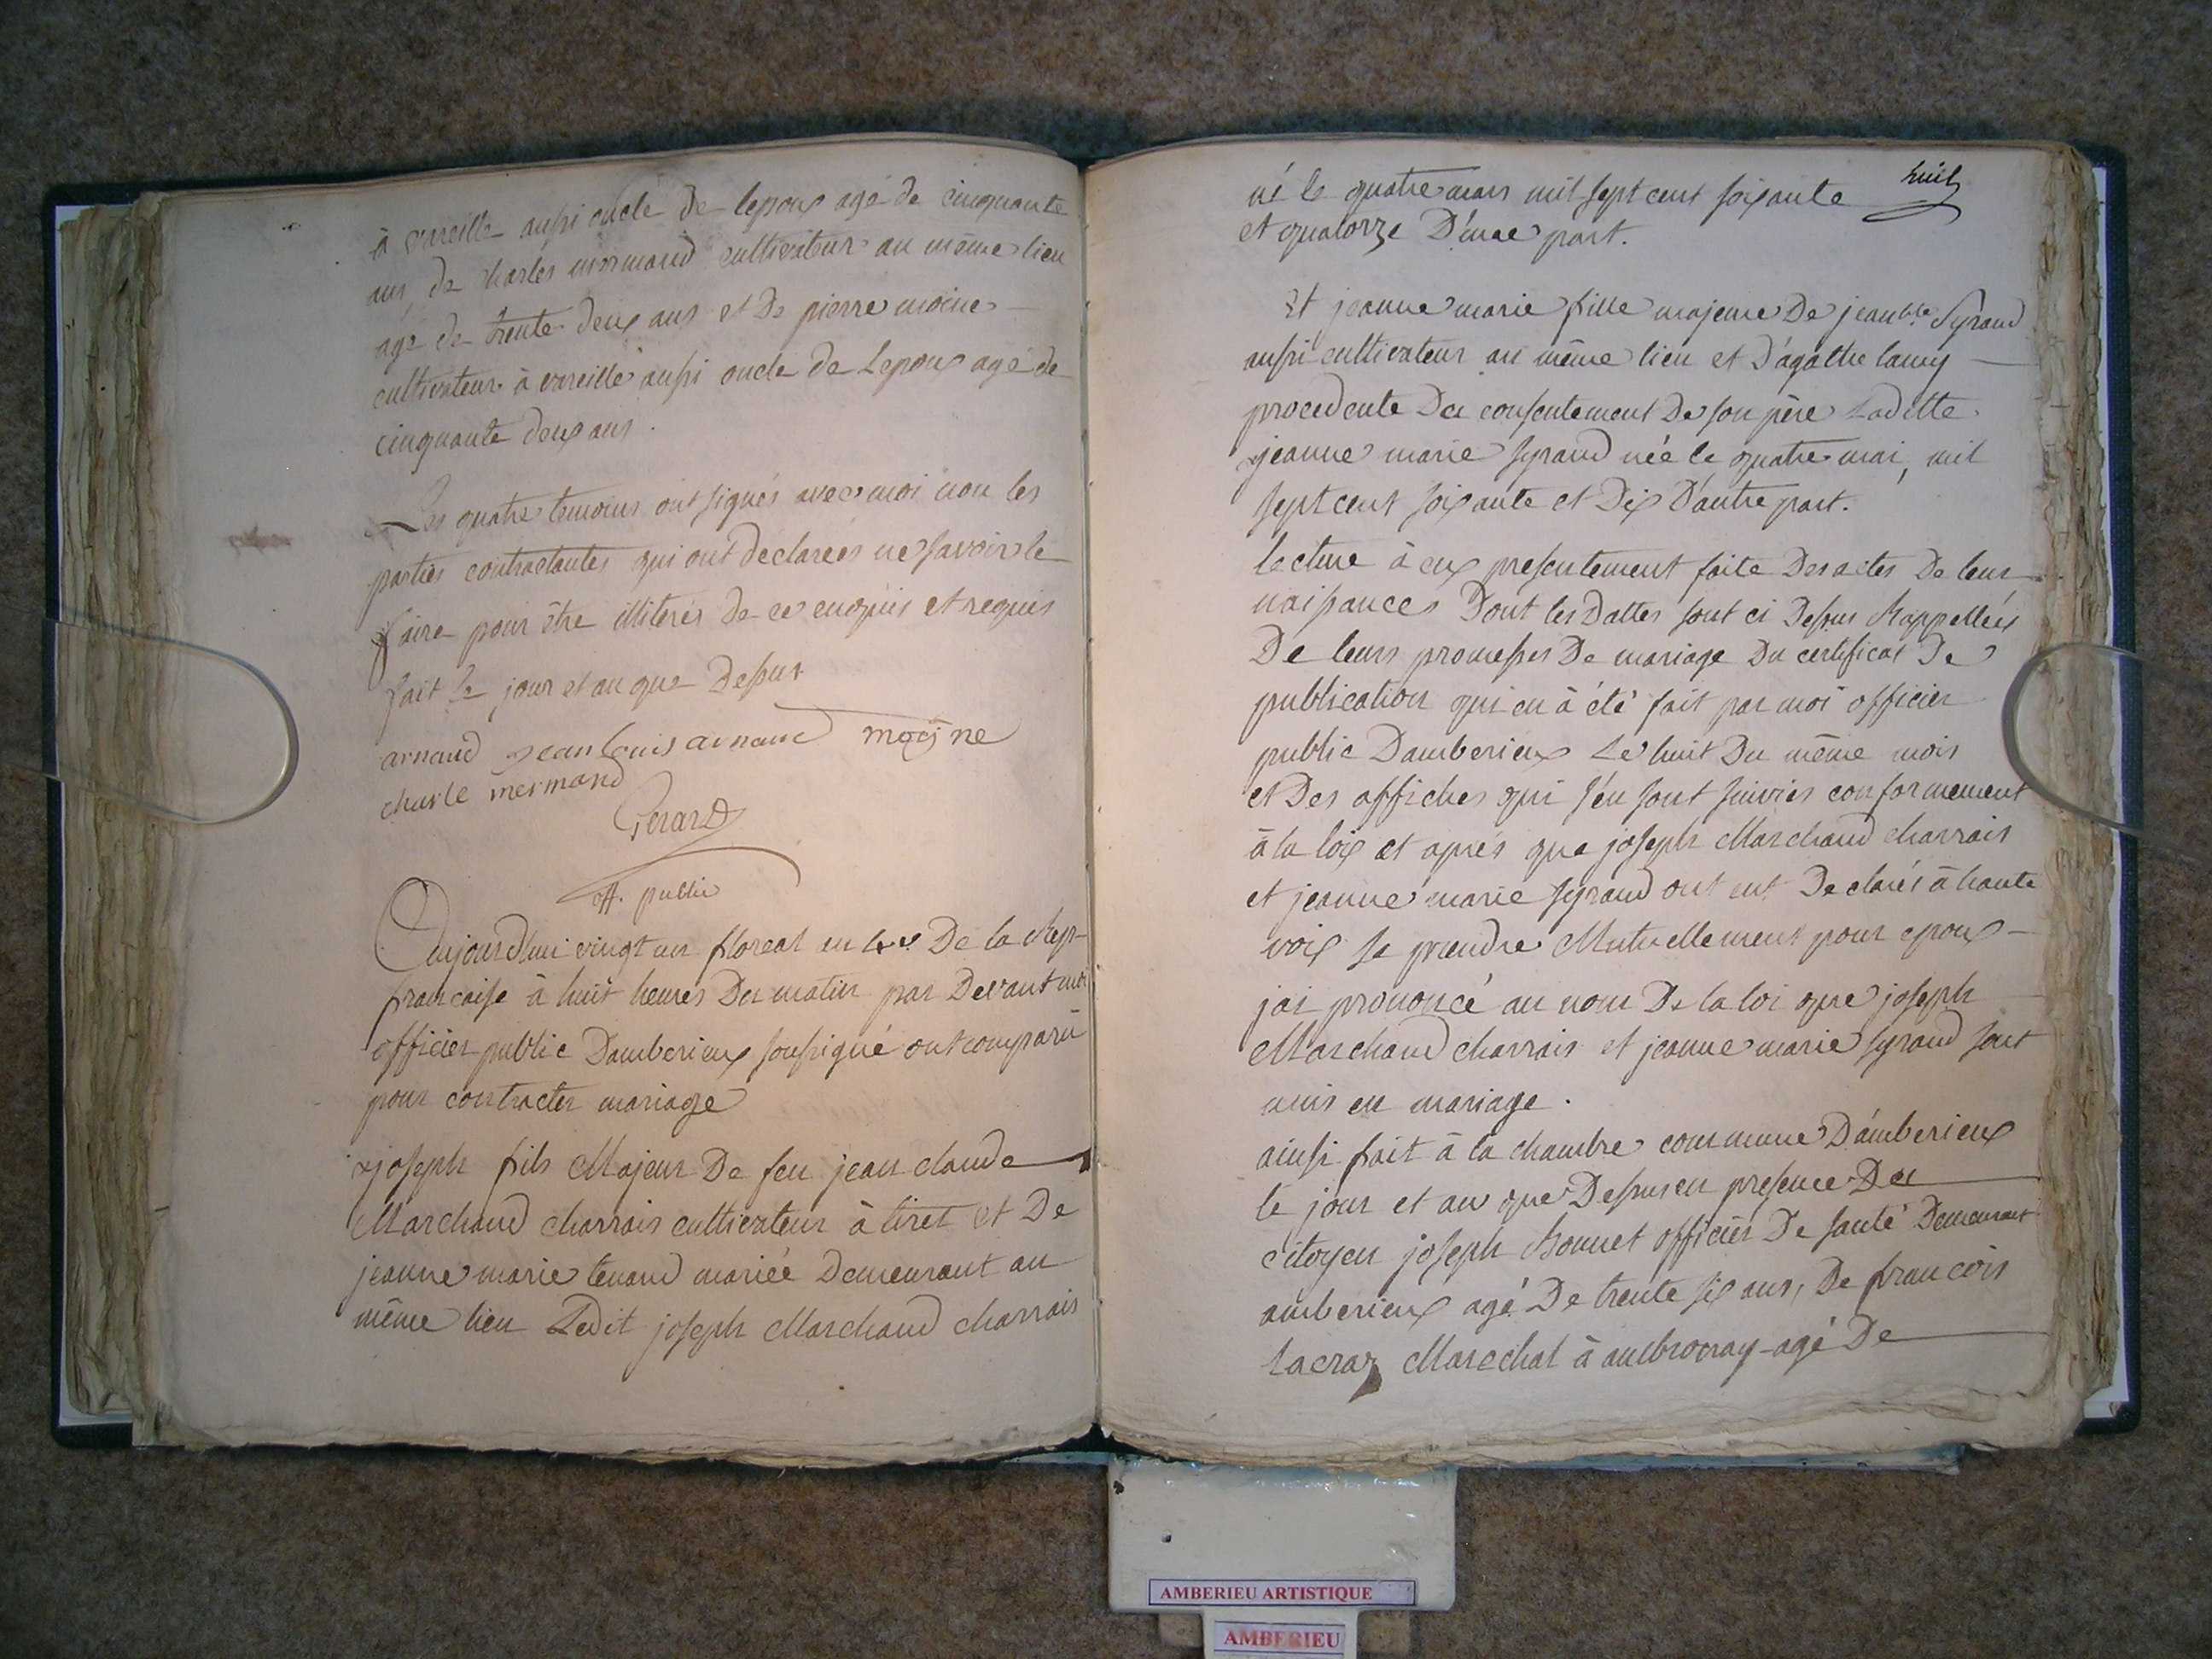 à vareille aussi oncle de lepoux agé de cinquante
ans, de charles mermand cultivateur au même lieu
agé de trente deux ans et de pierre moine
cultivateur à vareille aussi oncle de Lepoux agé de
cinquante deux ans.
Les quatre temoins ont signés avec moi non les
parties contractantes qui ont declarées ne savoir le
faire pour être illiterés de ce enquis et requis
fait le jour et an que Dessus
arnaud jean louis arnaud moine
charle mermand
Gerard
off. public
Aujourdhui vingt un floreal en De la Rep-
francaise à huit heures Du matin par Devant moi
officier public Damberieux soussigné ont comparu
pour contracter mariage
joseph fils Majeur De feu jean claude
Marchand charrais cultivateur à tiret et De
jeanne marie tenand mariée Demeurant au
même lieu Ledit joseph Marchand charrais
huit
né le quatre mars mil sept cent soixante
et quatorze D'une part.
Et jeanne marie fille majeure De jean bte Syraud
aussi cultivateur au même lieu et D'agathe lamy
procedente Du consentement De son père Laditte
jeanne marie syraud née le quatre mai, mil
sept cent soixante et Dix D'autre part.
lecture à eux presentement faite Des actes De leur
naissances Dont les Dattes sont ci Dessus Rappellées
De leurs promesses De mariage Du certificat De
publication qui en à été fait par moi officier
public Damberieux Le huit Du même mois
et Des affiches qui s'en sont suivies conformement
à la loix et aprés que joseph Marchand charrais
et jeanne marie syraud ont eut Declarés à haute
voix se prendre Mutuellement pour epoux
jai prononcé au nom De la loi que joseph
Marchand charrais et jeanne marie syraud sont
unis en mariage.
ainsi fait à la chambre commune D'amberieux
le jour et an que Dessus en presence Du
citoyen joseph Bonnet officier De santé Demeurant
amberieux agé De trente six ans, De francois
Lacraz Marechal à ambronay agé De
AMBERIEU ARTISTIQUE
AMBERIEU